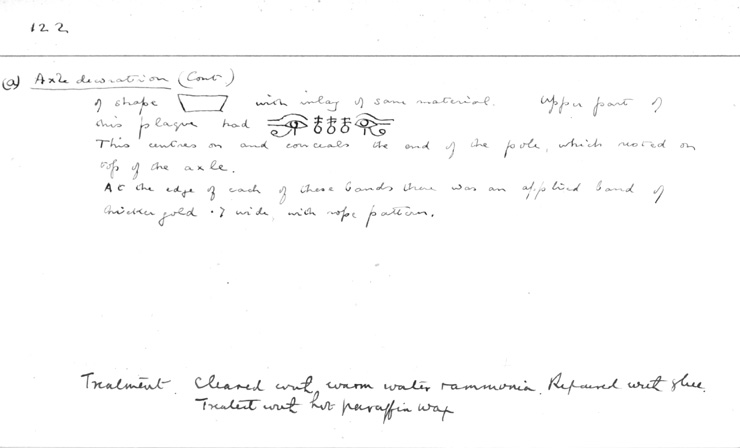 122
(a) Axle decoration (Cont)
of shape with inlay of same material. Upper part of
this plaque had 𓂀𓄤𓄤𓄤𓂀
This centres on and conceals the end of the pole, which rested on
top of the axle.
At the edge of each of these bands there was an applied band of
thicker gold .7 wide, with rope pattern.
Treatment. Cleaned with warm water & ammonia. Repaired with glue.
Treated with hot paraffin wax